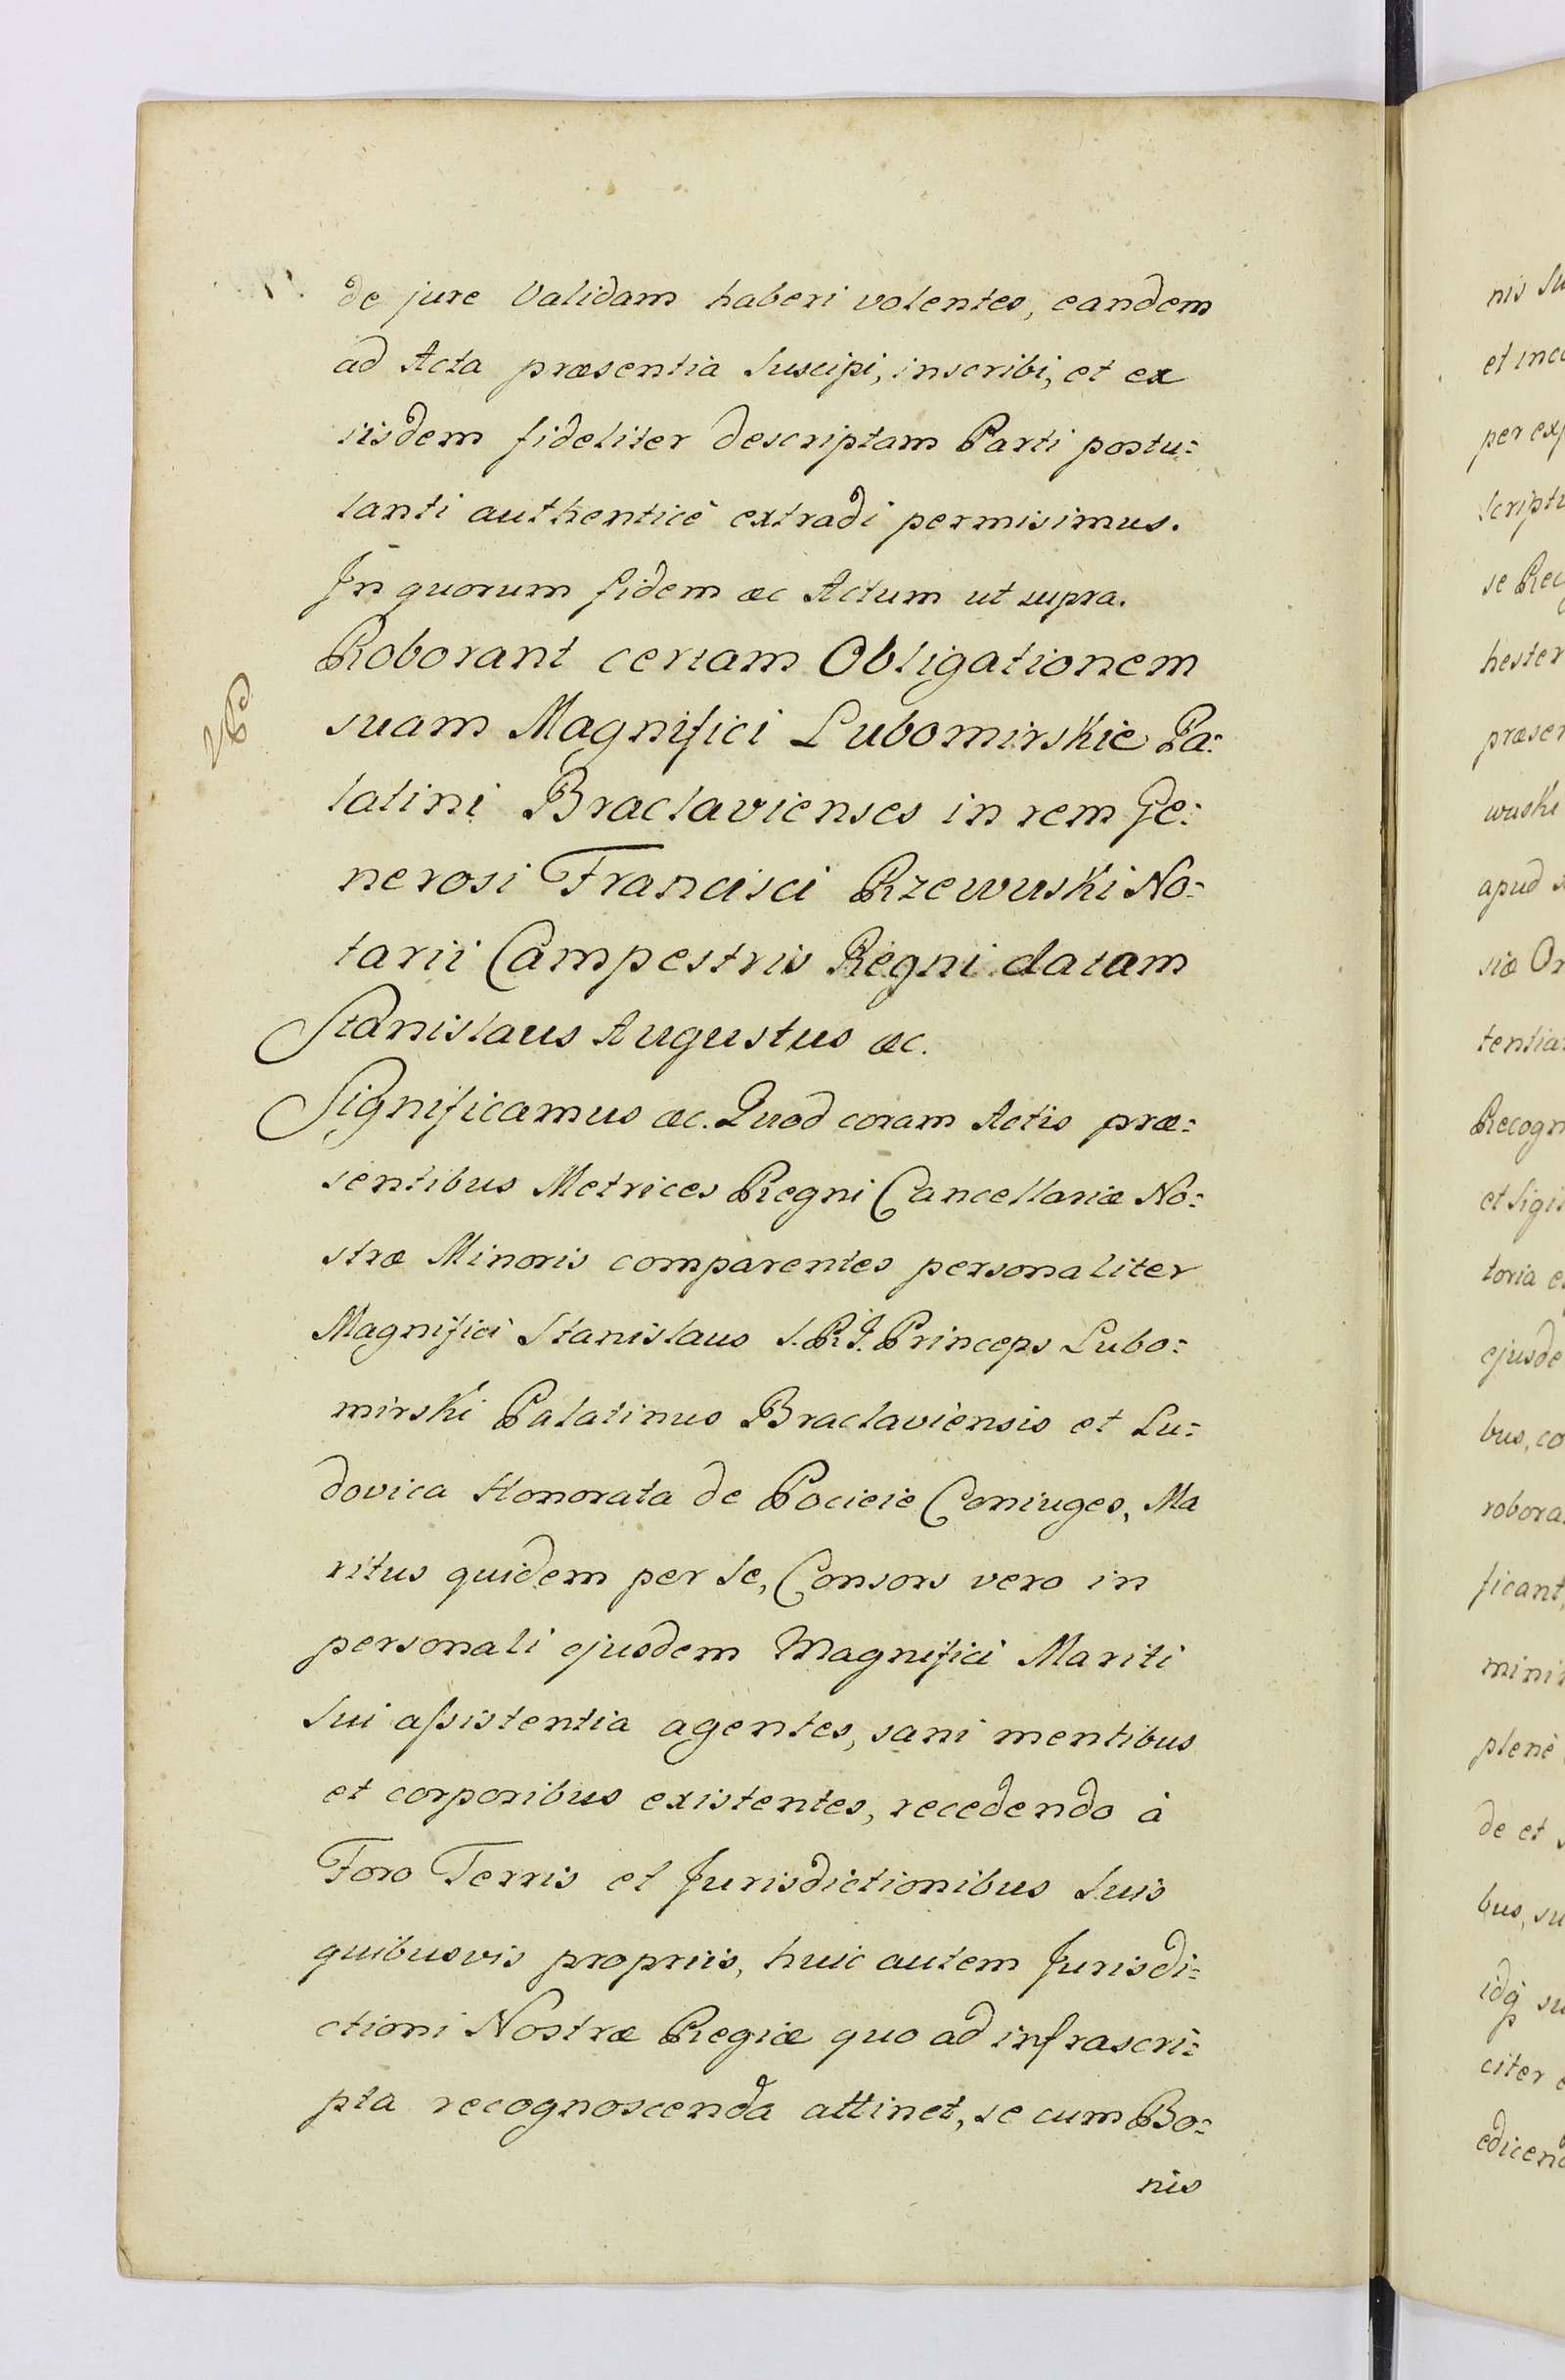 de jure Validam haberi volentes, eandem
ad Acta præsentia Suscipi, inscribi, et ex
iisdem fideliter descriptam Parti postu:
lanti authenticè extradi permisimus.
In quorum fidem &c Actum ut supra.
Roborant certam Obligationem
suam Magnifici Lubomirskie Pa:
latini Braclavienses in rem Ge:
nerosi Francisci Rzewuski No:
tarii Campestris Regni datam
Stanislaus Augustus &c.
Significamus &c. Quod coram Actis præ:
sentibus Metrices Regni Cancellariæ No:
stræ Minoris comparentes personaliter
Magnifici Stanislaus S.R.I. Princeps Lubo:
mirski Palatinus Braclaviensis et Lu:
dovica Honorata de Pocieie Coniuges, Ma
ritus quidem per se, Consors vero in
personali ejusdem Magnifici Mariti
Sui assistentia agentes, sani mentibus
et corporibus existentes, recedendo à
Foro Terris et Jurisdictionibus Suis
quibusvis propriis, huic autem Jurisdi:
ctioni Nostræ Regiæ quo ad infrascri:
pta recognoscenda attinet, se cum Bo:
nis
nis
per
se
hester
wuski
apud
siæ
Recogn
toria
ejusde
bus, co
robora
ficant,
plenè
de et
bus, su
citer